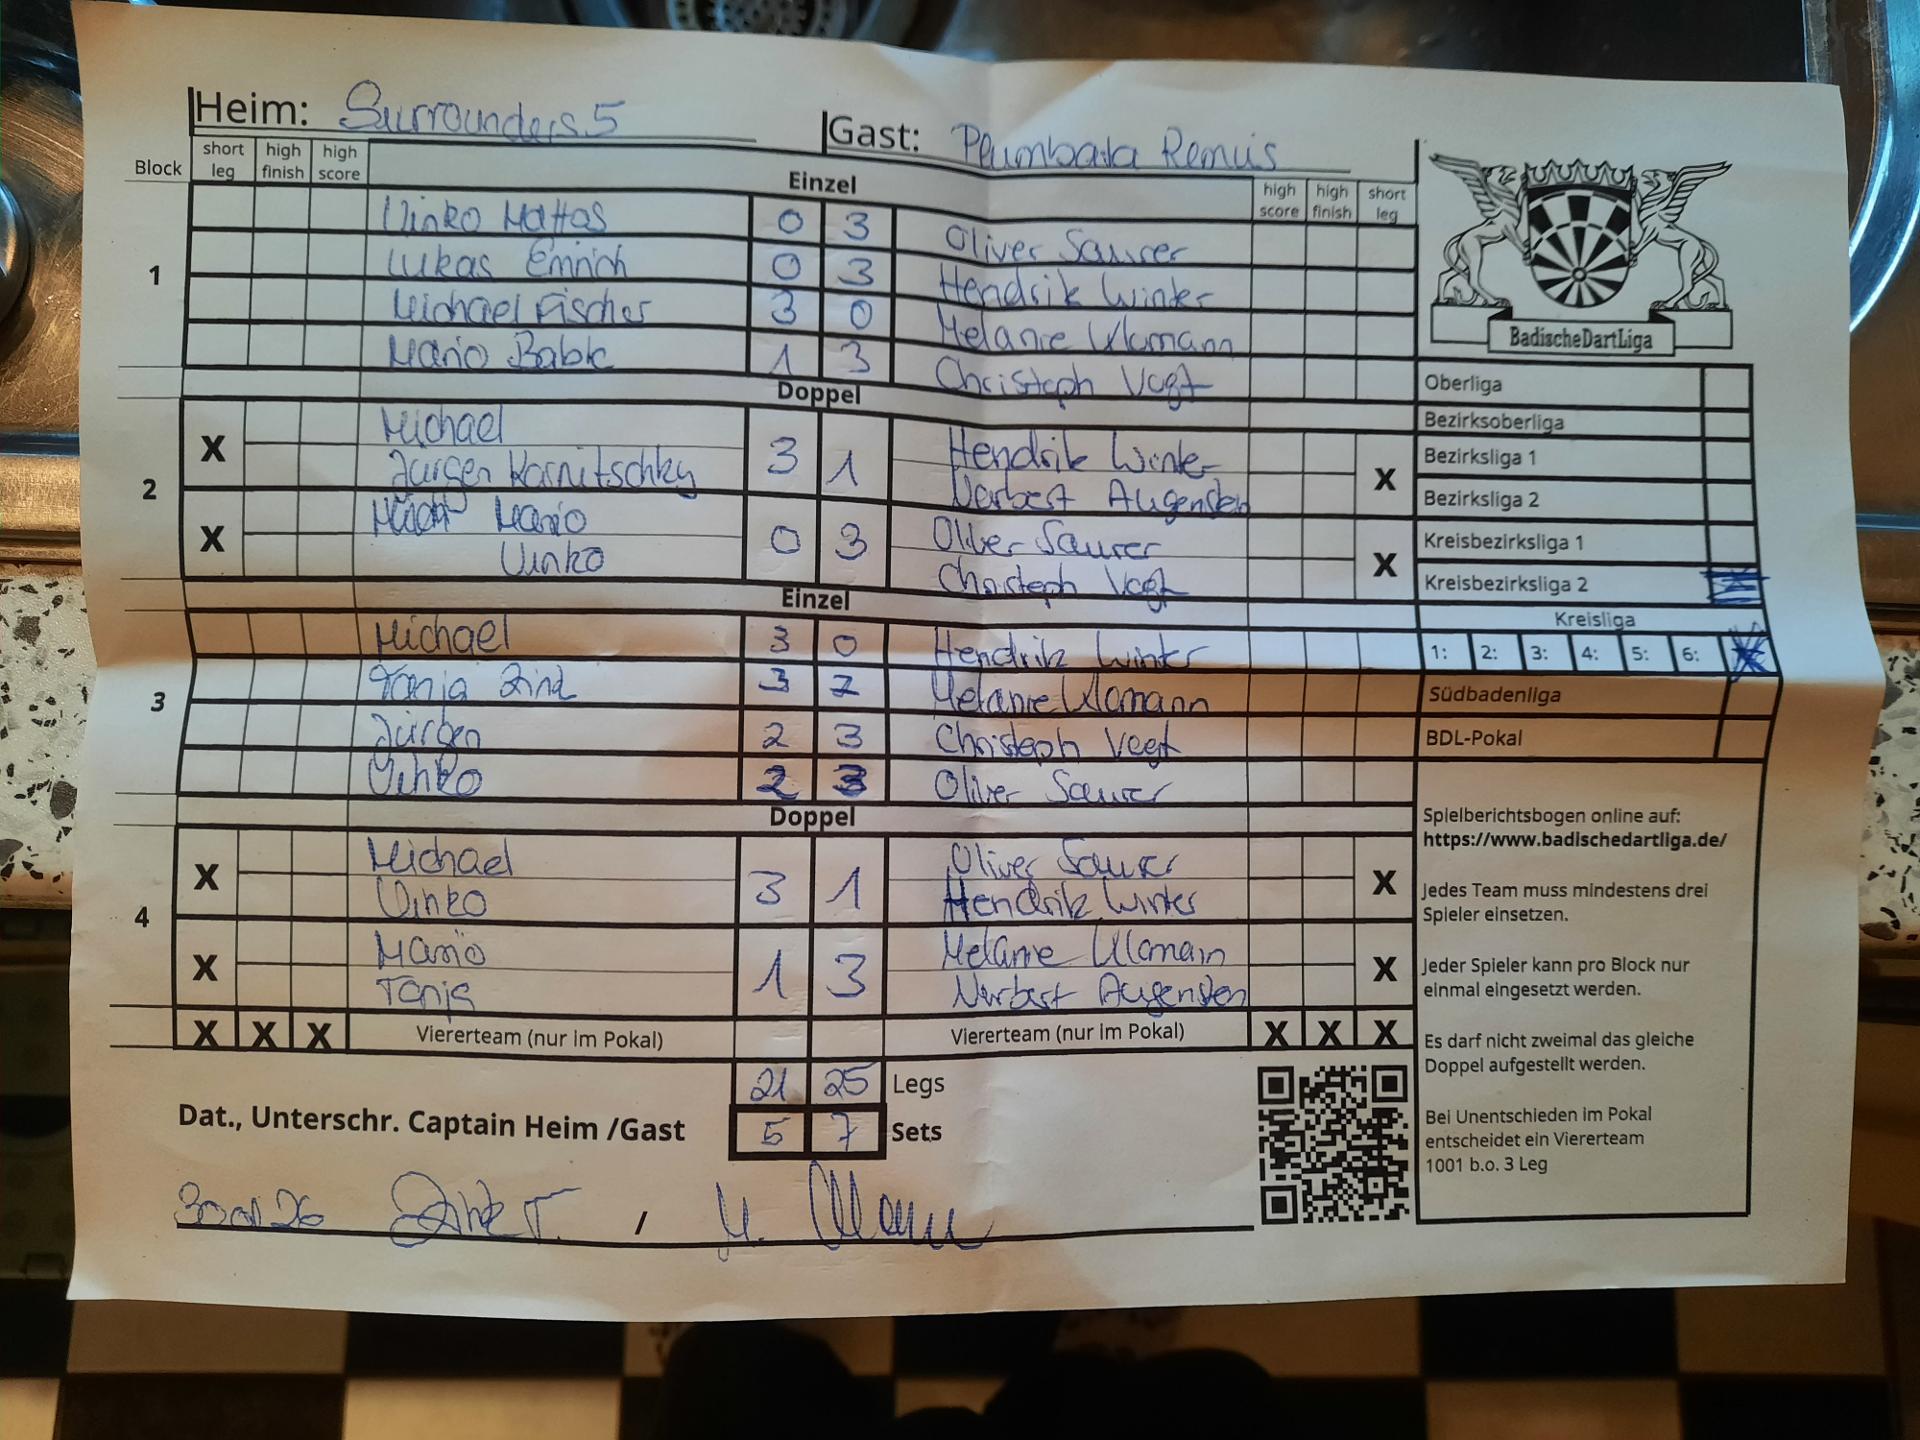 Heim: Surrounders 5 Gast: Plumbata Remus
Block short leg high finish high score Einzel high score high finish short leg
1
Vinko Mattas 0 3 Oliver Saurer
Lukas Emrich 0 3 Hendrik Winter
Michael Fischer 3 0 Melanie Ulamann
Mario Bable 1 3 Christoph Vogt
Doppel
2
X Michael 3 1 Hendrik Winter X
Jürgen Karnitschky Norbert Augenstein
X Mario 0 3 Oliver Saurer X
Vinko Christoph Vogt
Einzel
3
Michael 3 0 Hendrik Winter
Tanja Zink 3 2 Melanie Ulamann
Jürgen 2 3 Christoph Vogt
Vinko 2 3 Oliver Saurer
Doppel
4
X Michael 3 1 Oliver Saurer X
Vinko Hendrik Winter
X Mario 1 3 Melanie Ulamann X
Tanja Norbert Augenstein
X X X Viererteam (nur im Pokal) Viererteam (nur im Pokal) X X X
21 25 Legs
Dat., Unterschr. Captain Heim /Gast 5 7 Sets
30 01 26 /
BadischeDartLiga
Oberliga
Bezirksoberliga
Bezirksliga 1
Bezirksliga 2
Kreisbezirksliga 1
Kreisbezirksliga 2
Kreisliga
1: 2: 3: 4: 5: 6:
Südbadenliga
BDL-Pokal
Spielberichtsbogen online auf:
https://www.badischedartliga.de/
Jedes Team muss mindestens drei
Spieler einsetzen.
Jeder Spieler kann pro Block nur
einmal eingesetzt werden.
Es darf nicht zweimal das gleiche
Doppel aufgestellt werden.
Bei Unentschieden im Pokal
entscheidet ein Viererteam
1001 b.o. 3 Leg